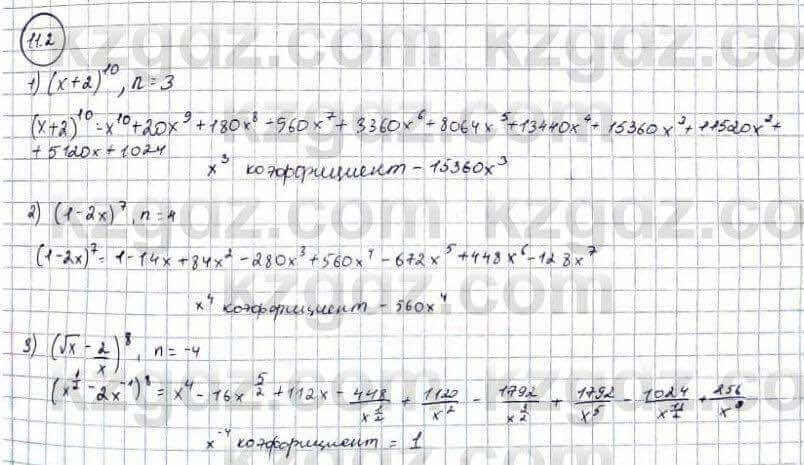 11.2
1) (x+2)^10, n=3
(x+2)^10 = x^10+20x^9+180x^8+960x^7+3360x^6+8064x^5+13440x^4+15360x^3+11520x^2+
+5120x+1024
x^3 коэффициент - 15360x^3
2) (1-2x)^7, n=4
(1-2x)^7 = 1-14x+84x^2-280x^3+560x^4-672x^5+448x^6-128x^7
x^4 коэффициент - 560x^4
3) (√x - 2/x)^8, n=-4
(x^(1/2) - 2x^(-1))^8 = x^4 - 16x^(5/2) + 112x - 448/x^(1/2) + 1120/x^2 - 1792/x^(1/2) + 1792/x^5 - 1024/x^(11/2) + 256/x^8
x^(-4) коэффициент = 1
kzgdz.com